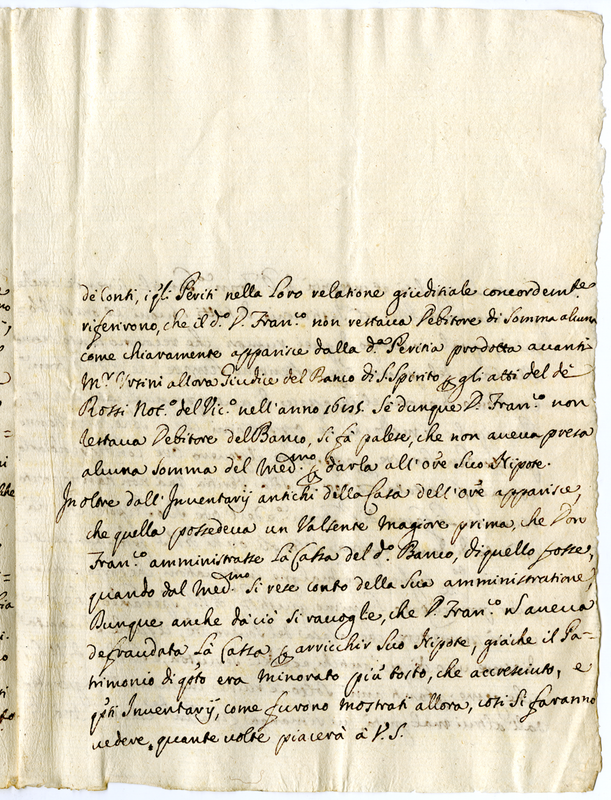 de Conti, i q̃li Periti nella loro relatione giuditiale concordem.te
riferirono, che il d.o D. Fran.co non restaua Debitore di Somma alcuna
come chiaramente apparisce dalla d.a Peritia prodotta auanti
M.r Ursini allora Giudice del Banco di S. Spirito, p gli atti del de
Rossi Not.o del Vic.o nell'anno 1695. Se dunque D. Fran.co non
restaua Debitore del Banco, si fà palese, che non aueua presa
alcuna somma del Med.mo p darla all'ore suo Nipote.
In oltre dall'Inuentarij antichi della Casa dell'ore apparisce,
che quella possedeua un Valsente magiore prima, che Don
Fran.co amministrasse La Cassa del d.o Banco, di quello fosse,
quando dal Med.mo si rese conto della sua amministratione,
Dunque anche da ciò si racoglie, che D. Fran.co n̄ aueua
defraudata La Cassa p arricchir suo Nipote, giache il Pa-
trimonio di q̃sto era minorato più tosto, che accresciuto, e
q̃sti Inuentarij, come furono mostrati allora, così si faranno
uedere, quante uolte piacerà à V. S.